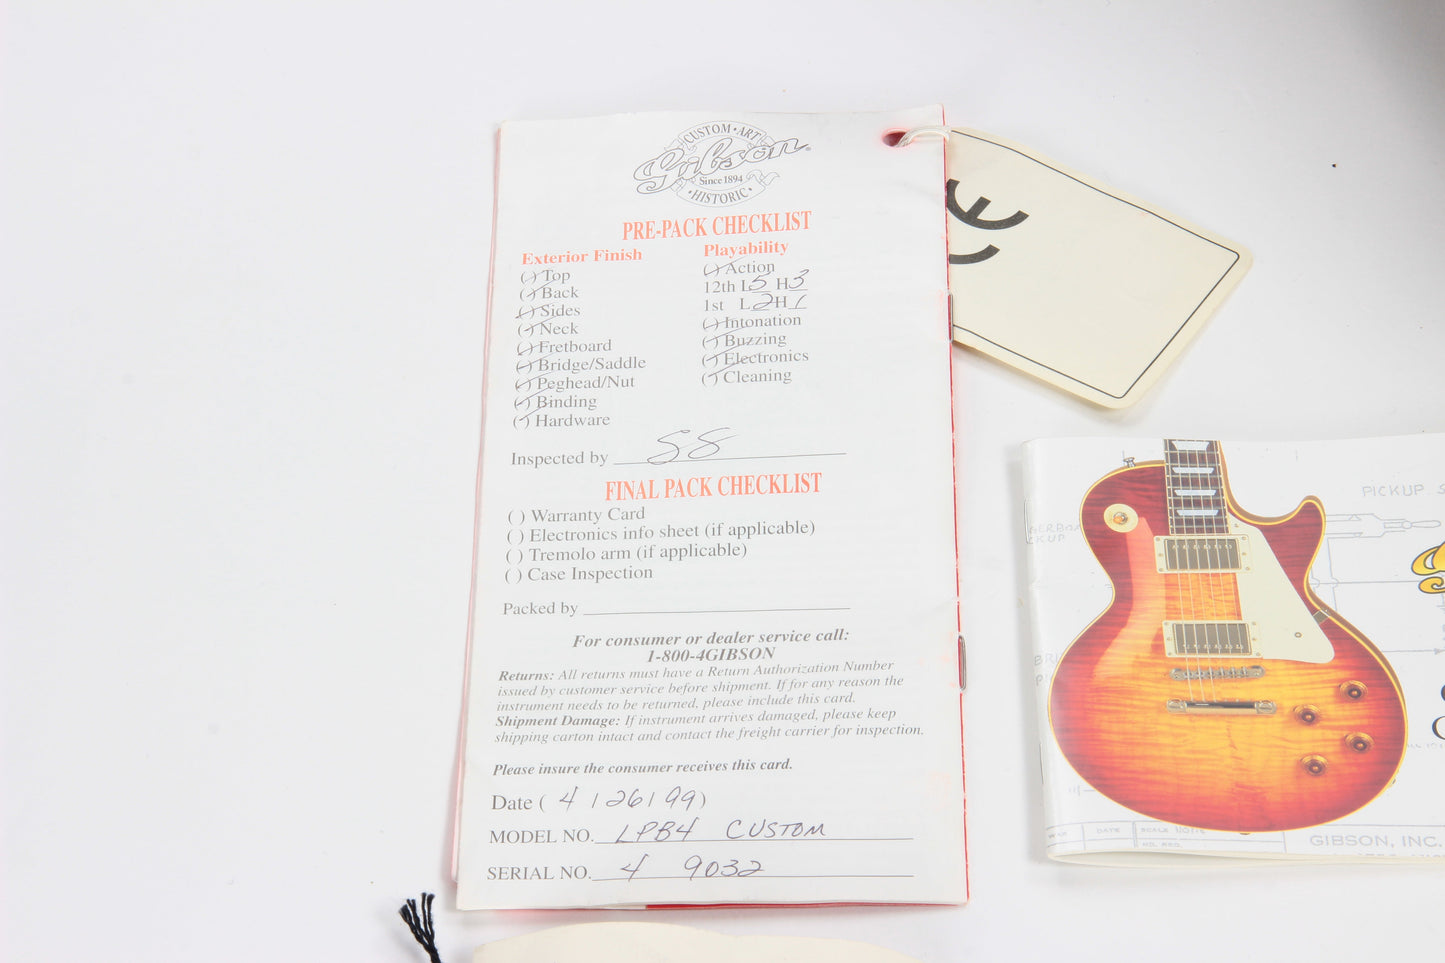 CUSTOM • ART
Gibson
Since 1894
• HISTORIC •
PRE-PACK CHECKLIST
Exterior Finish
( ) Top
( ) Back
( ) Sides
( ) Neck
( ) Fretboard
( ) Bridge/Saddle
( ) Peghead/Nut
( ) Binding
( ) Hardware
Playability
( ) Action
12th L 5 H 3
1st L 2 H 1
( ) Intonation
( ) Buzzing
( ) Electronics
( ) Cleaning
Inspected by SS
FINAL PACK CHECKLIST
( ) Warranty Card
( ) Electronics info sheet (if applicable)
( ) Tremolo arm (if applicable)
( ) Case Inspection
Packed by
For consumer or dealer service call:
1-800-4GIBSON
Returns: All returns must have a Return Authorization Number
issued by customer service before shipment. If for any reason the
instrument needs to be returned, please include this card.
Shipment Damage: If instrument arrives damaged, please keep
shipping carton intact and contact the freight carrier for inspection.
Please insure the consumer receives this card.
Date ( 4 / 26 / 99 )
MODEL NO. LPB4 CUSTOM
SERIAL NO. 4 9032
CE
PICKUP
DATE
SCALE
GIBSON, INC.